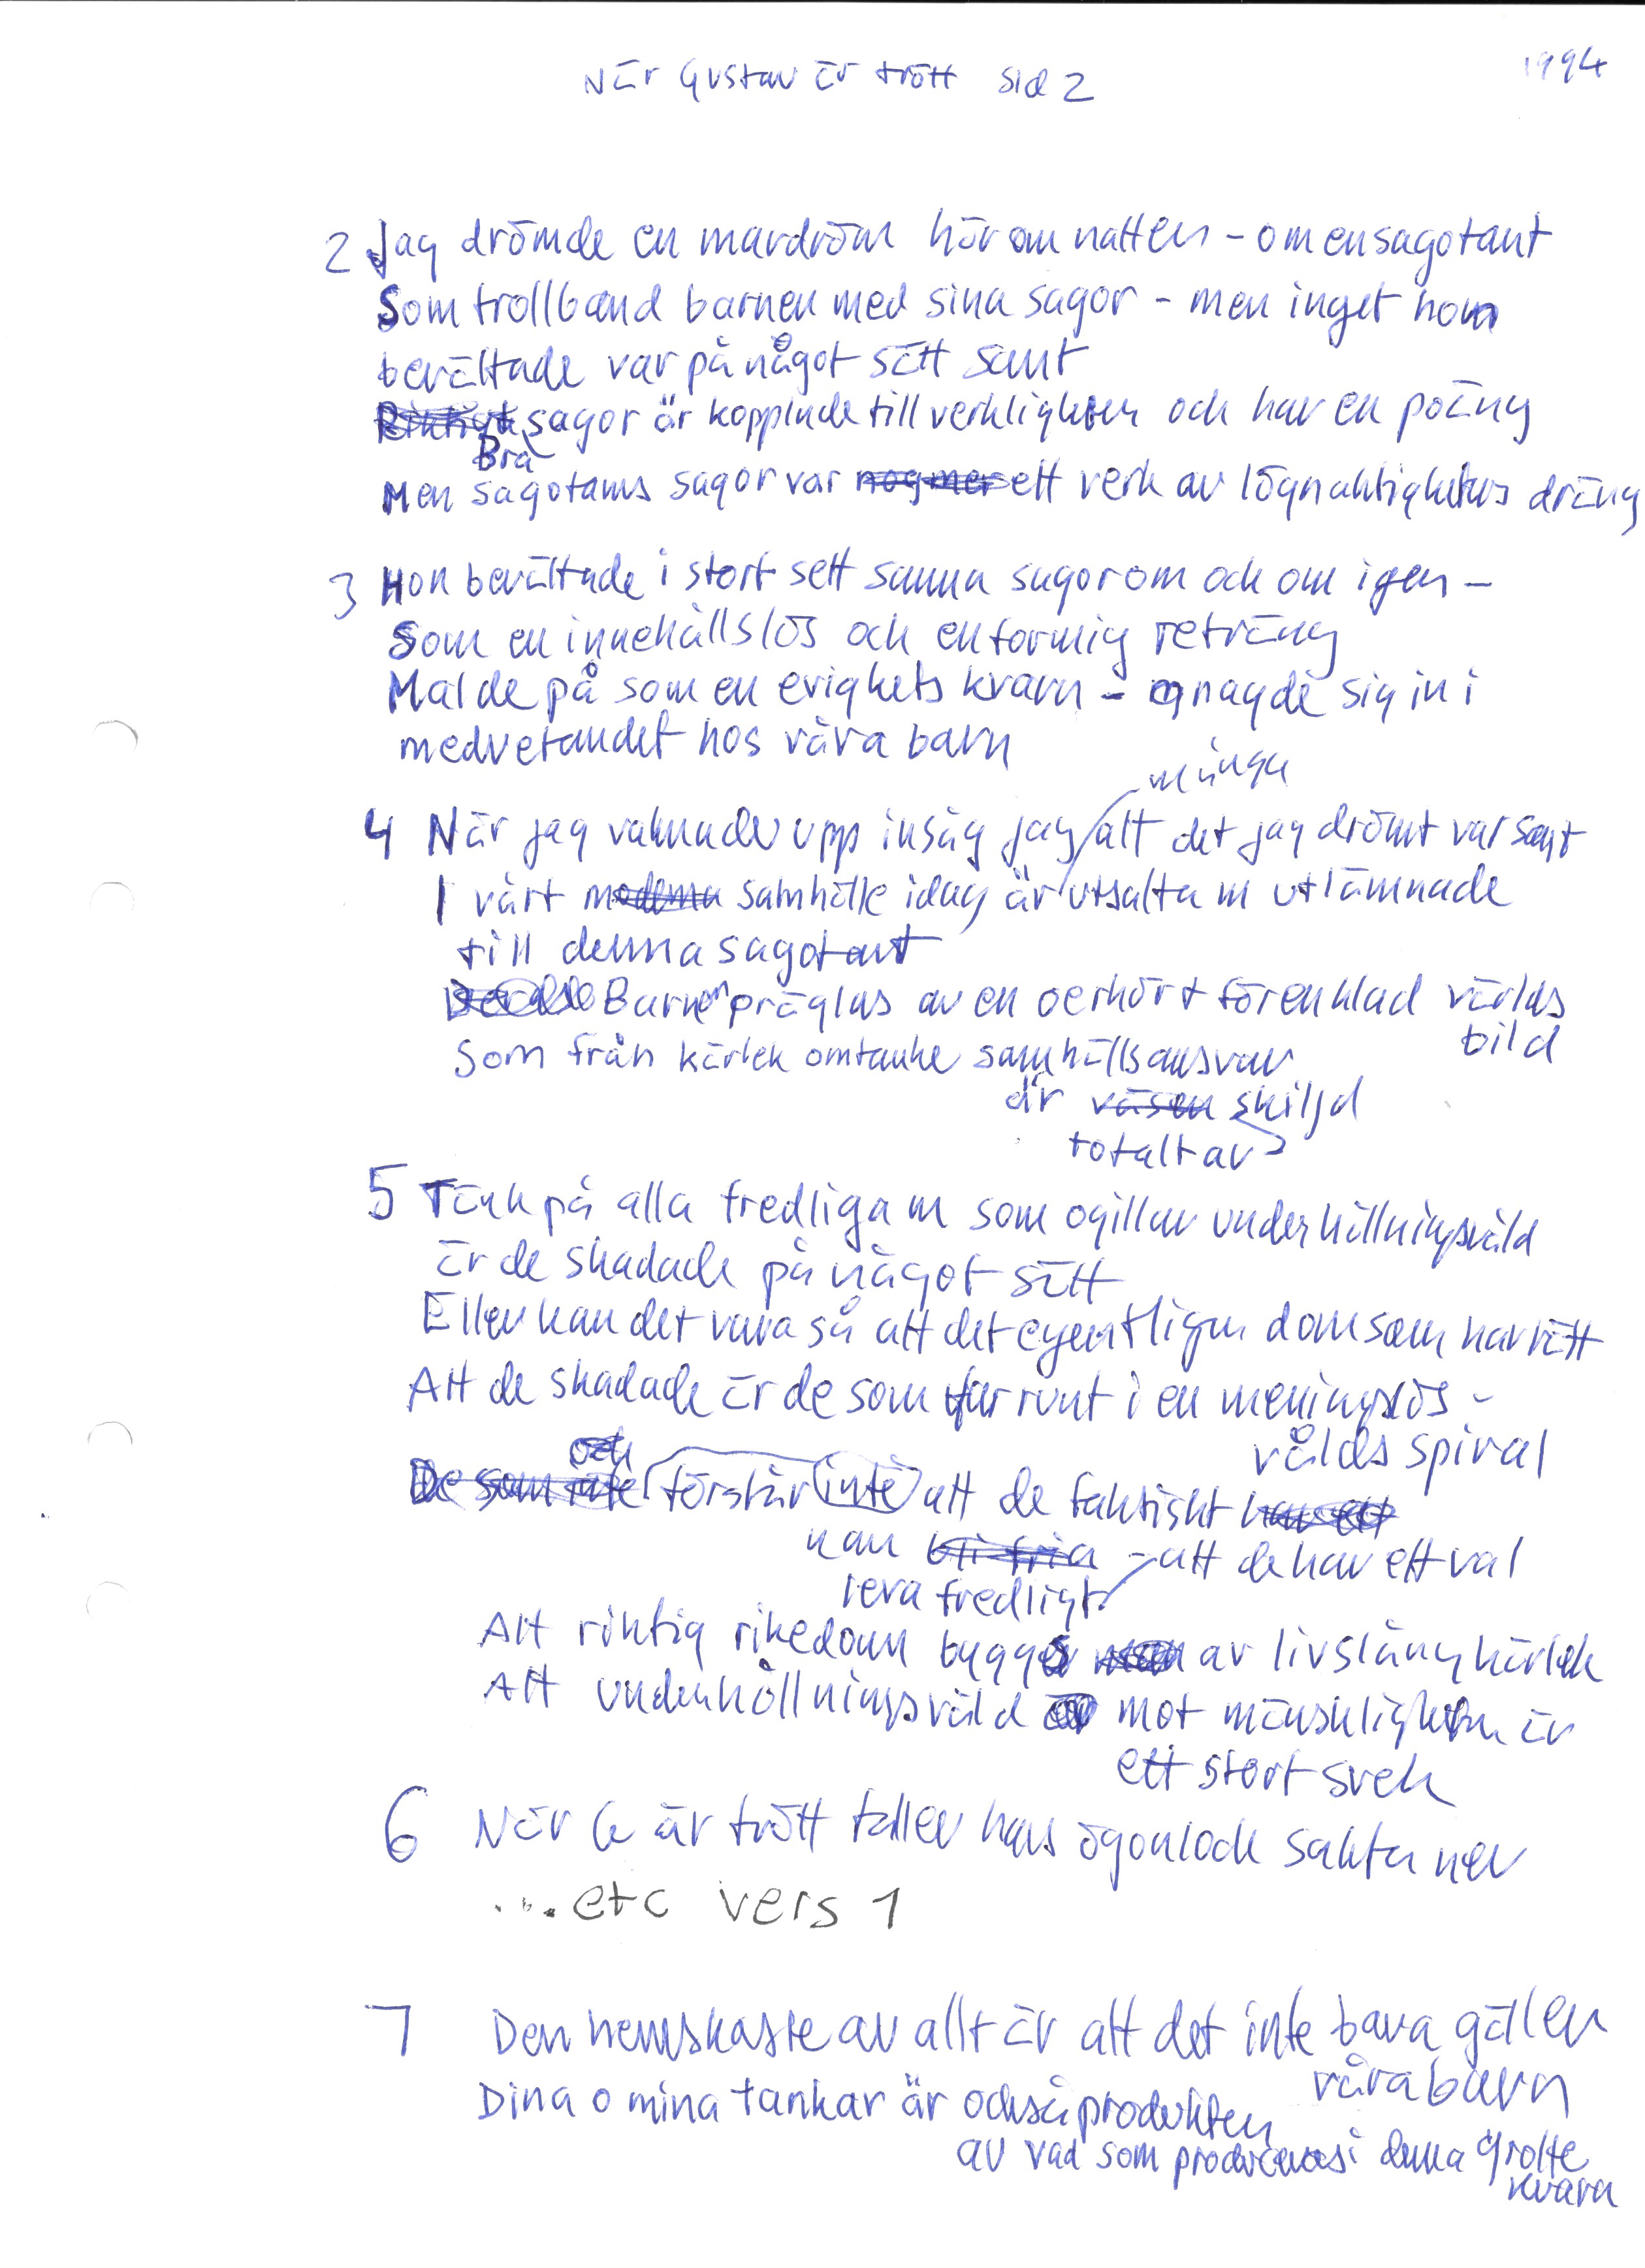 När Gustav är trött sid 2
1994
2 Jag drömde en mardröm hörom natten - om en sagotant
Som trollband barnen med sina sagor - men inget hon
berättade var på något sätt sant
Riktigt sagor är kopplade till verkligheten och har en poäng
Bra
Men sagotants sagor var nog mer ett verk av lögnaktighetens dräng
3 Hon berättade i stort sett samma sagor om och om igen -
Som en innehållslös och enformig refräng
Malde på som en evighets kvarn - gnagde sig in i
medvetandet hos våra barn
många
4 När jag vaknade upp insåg jag att det jag drömt var sant
I vårt moderna samhälle idag är utsatta m utlämnade
till denna sagotant
Barnen präglas av en oerhört förenklad världs
bild
Som från kärlek omtanke samhällsansvar
är väsen skiljd
totalt av
5 Tänk på alla fredliga m som ogillar underhållningsvåld
Är de skadade på något sätt
Eller kan det vara så att det egentligen dom som har rätt
Att de skadade är de som far runt i en meningslös -
vålds spiral
och
De som inte förstår inte att de faktiskt har ett
kan bli fria - att de har ett val
leva fredligt
Att riktig rikedom byggs av livslång kärlek
Att underhållningsvåld mot mänskligheten är
ett stort svek
6 När G är trött faller hans ögonlock sakta ner
... etc vers 1
7 Den hemskaste av allt är att det inte bara gäller
våra barn
Dina o mina tankar är också produkten
av vad som produceras i denna Grotte
kvarn